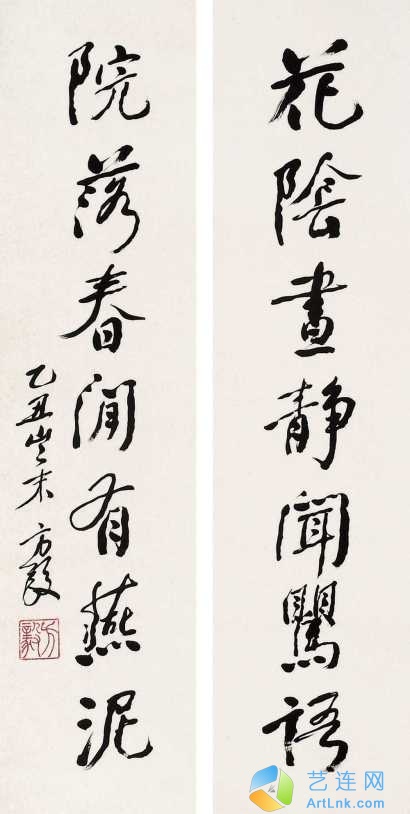 花陰晝静聞鸎語
院落春閒有燕泥
乙丑岁末 方毅
方毅
艺连网
ArtLnk.com